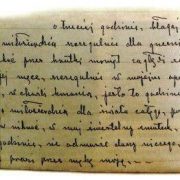 o trzeciej godzinie, błagaj
miłosierdzia szczególnie dla grzesz
przez krótki moment zagłęb
męce, szczególnie w mojem op
w chwili konania, jest to godzina
miłosierdzia dla świata całego, po
wnikać, w mój śmiertelny smutek
godzinie, nie odmówię duszy niczego
prosi przez mękę moją